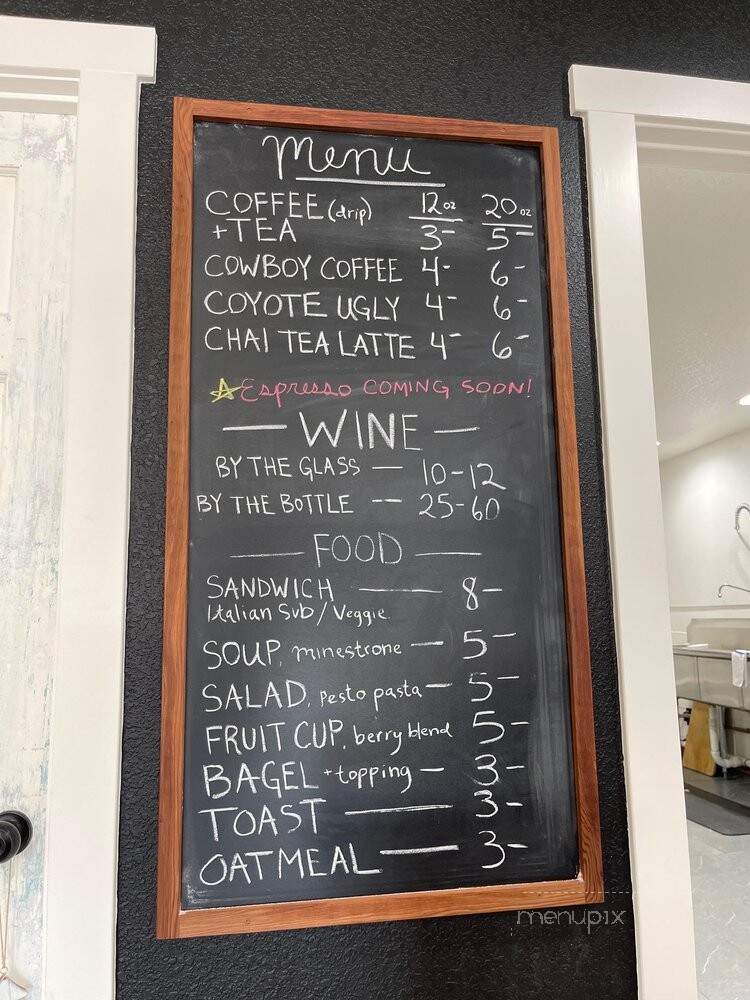 Menu
COFFEE (drip) 12oz 20oz
+TEA 3- 5-
COWBOY COFFEE 4- 6-
COYOTE UGLY 4- 6-
CHAI TEA LATTE 4- 6-
☆Espresso COMING SOON!
— WINE —
BY THE GLASS — 10-12
BY THE BOTTLE -- 25-60
— FOOD —
SANDWICH — 8-
Italian Sub/Veggie
SOUP, minestrone — 5-
SALAD, pesto pasta — 5-
FRUIT CUP, berry blend 5-
BAGEL +topping — 3-
TOAST — 3-
OATMEAL — 3-
menupix